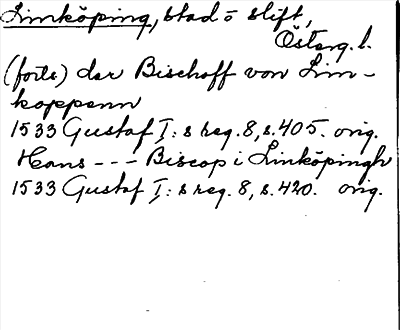 Linköping, stad o stift,
Österg. l.
(forts) der Bischoff von Lin-
koppenn
1533 Gustaf I:s reg. 8, s. 405. orig.
Hans --- Biscop i Linköpingh
1533 Gustaf I:s reg. 8, s. 420. orig.